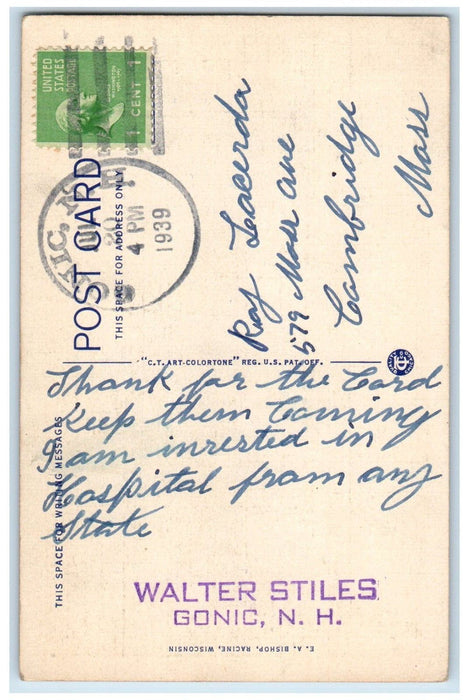 UNITED STATES
POSTAGE
1 CENT 1
NIC, N
JUL
20
4 PM
1939
POST CARD
THIS SPACE FOR ADDRESS ONLY
Ray Lacerda
579 Mass Ave
Cambridge
Mass
"C.T. ART-COLORTONE" REG. U.S. PAT. OFF.
THIS SPACE FOR WRITING MESSAGES
Thank for the Card
Keep them Coming
I am inrested in
Hospital from any
State
WALTER STILES
GONIC, N. H.
E. A. BISHOP, RACINE, WISCONSIN